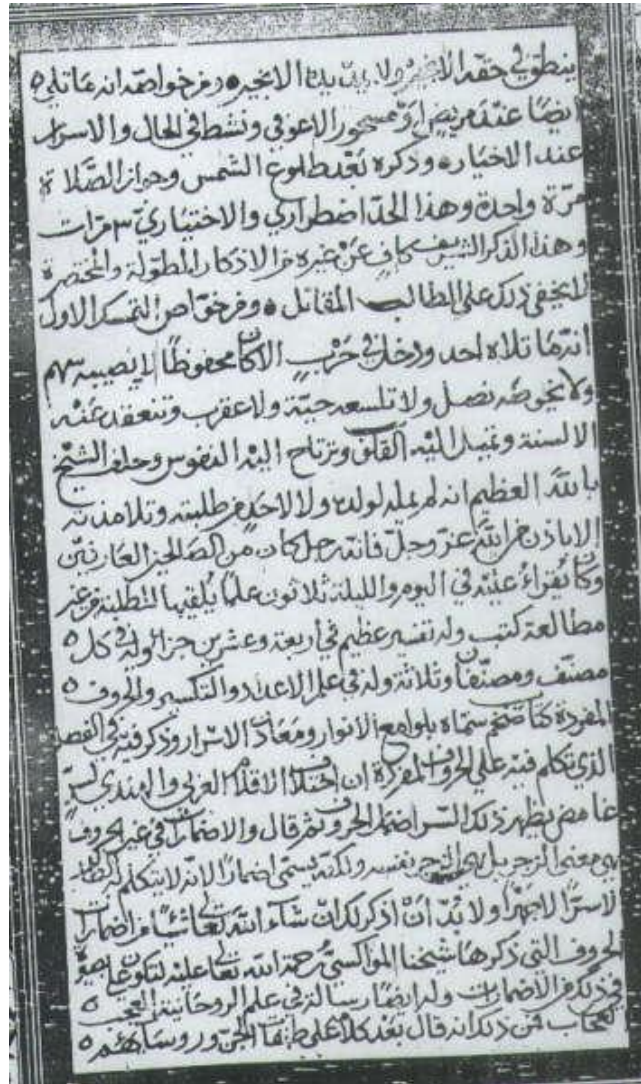 ينطق في حقه الا بخير ولا الا بخير ومن خواصه انه ما تلي
ايضا عند مريض او مسحور الا عوفي ونشط في الحال والاسرار
عند الاختيار وذكره بعد طلوع الشمس وجواز الصلاة
مرة واحدة وهذا الحد اضطراري والاختياري ٣ مرات
وهذا الذكر الشريف كاف عن غيره من الاذكار المطولة والمختصرة
لا يخفى ذلك على الطالب المقاتل ومن خواص التمسك الاول
انه ما تلاه احد ودخل في حرب الا كان محفوظا لا يصيبه سهم
ولا يخوضه نصل ولا تلسعه حية ولا عقرب وتنعقد عنه
الالسنة وتميل اليه القلوب وترتاح اليه النفوس وحلف الشيخ
بالله العظيم انه لم يمله لولده ولا لاحد من طلبته وتلامذته
الا باذن من الله عز وجل فانه رجل كان من الصالحين العارفين
وكان يقراء عليه في اليوم والليلة ثلاثون علما يلقيها للطلبة من غير
مطالعة كتب وله تفسير عظيم في اربعة وعشرين جزا وله في كل
مصنف ومصنفان وثلاثة وله في علم الاعداد والتكسير والحروف
المفردة كتاب ضخم سماه بلوامع الانوار ومعادن الاسرار وذكر فيه في الفصل
الذي تكلم فيه علي الحروف المفردة ان اختلاف الاقلام العربي والهندي لسر
غامض يظهر ذلك السر اضمار الحروف ثم قال والاضمارات في غير الحروف
هي معنى الزجر بل هي الزجر بنفسه ولكنه يسمى اضمارا لانه لا يتكلم به الطالب
الا سرا لا جهرا ولا بد ان اذكر لك ان شاء الله تعالى شيئا من اضمارات
الحروف التي ذكرها شيخنا المواكسي رحمة الله تعالى عليه لتكون على
في ذلك من الاضمارات وله ايضا رسالة في علم الروحانية العجب
العجاب من ذلك انه قال بعد كلام على طبقات الجن وروسائهم